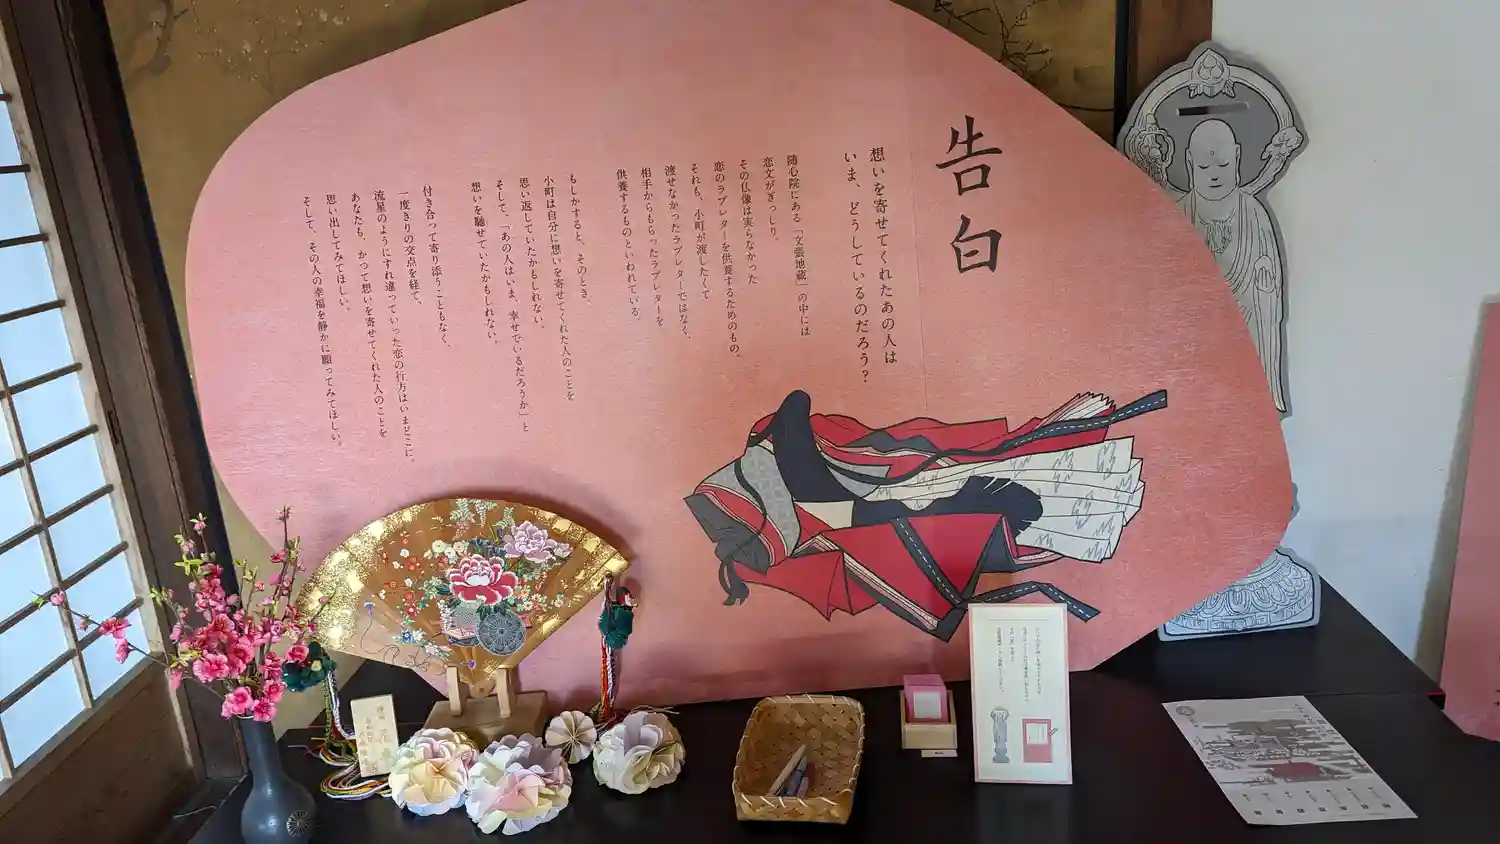 告白
想いを寄せてくれたあの人は
いま、どうしているのだろう？
随心院にある「文張地蔵」の中には
恋文がぎっしり。
その仏像は実らなかった
恋のラブレターを供養するためのもの。
それも、小町が渡したくて
渡せなかったラブレターではなく、
相手からもらったラブレターを
供養するものといわれている。
もしかすると、そのとき、
小町は自分に想いを寄せてくれた人のことを
思い返していたかもしれない。
そして、「あの人はいま、幸せでいるだろうか」と
想いを馳せていたかもしれない。
付き合って寄り添うこともなく、
一度きりの交点を経て、
流星のようにすれ違っていった恋の行方はいまどこに。
あなたも、かつて想いを寄せてくれた人のことを
思い出してみてほしい。
そして、その人の幸福を静かに願ってみてほしい。